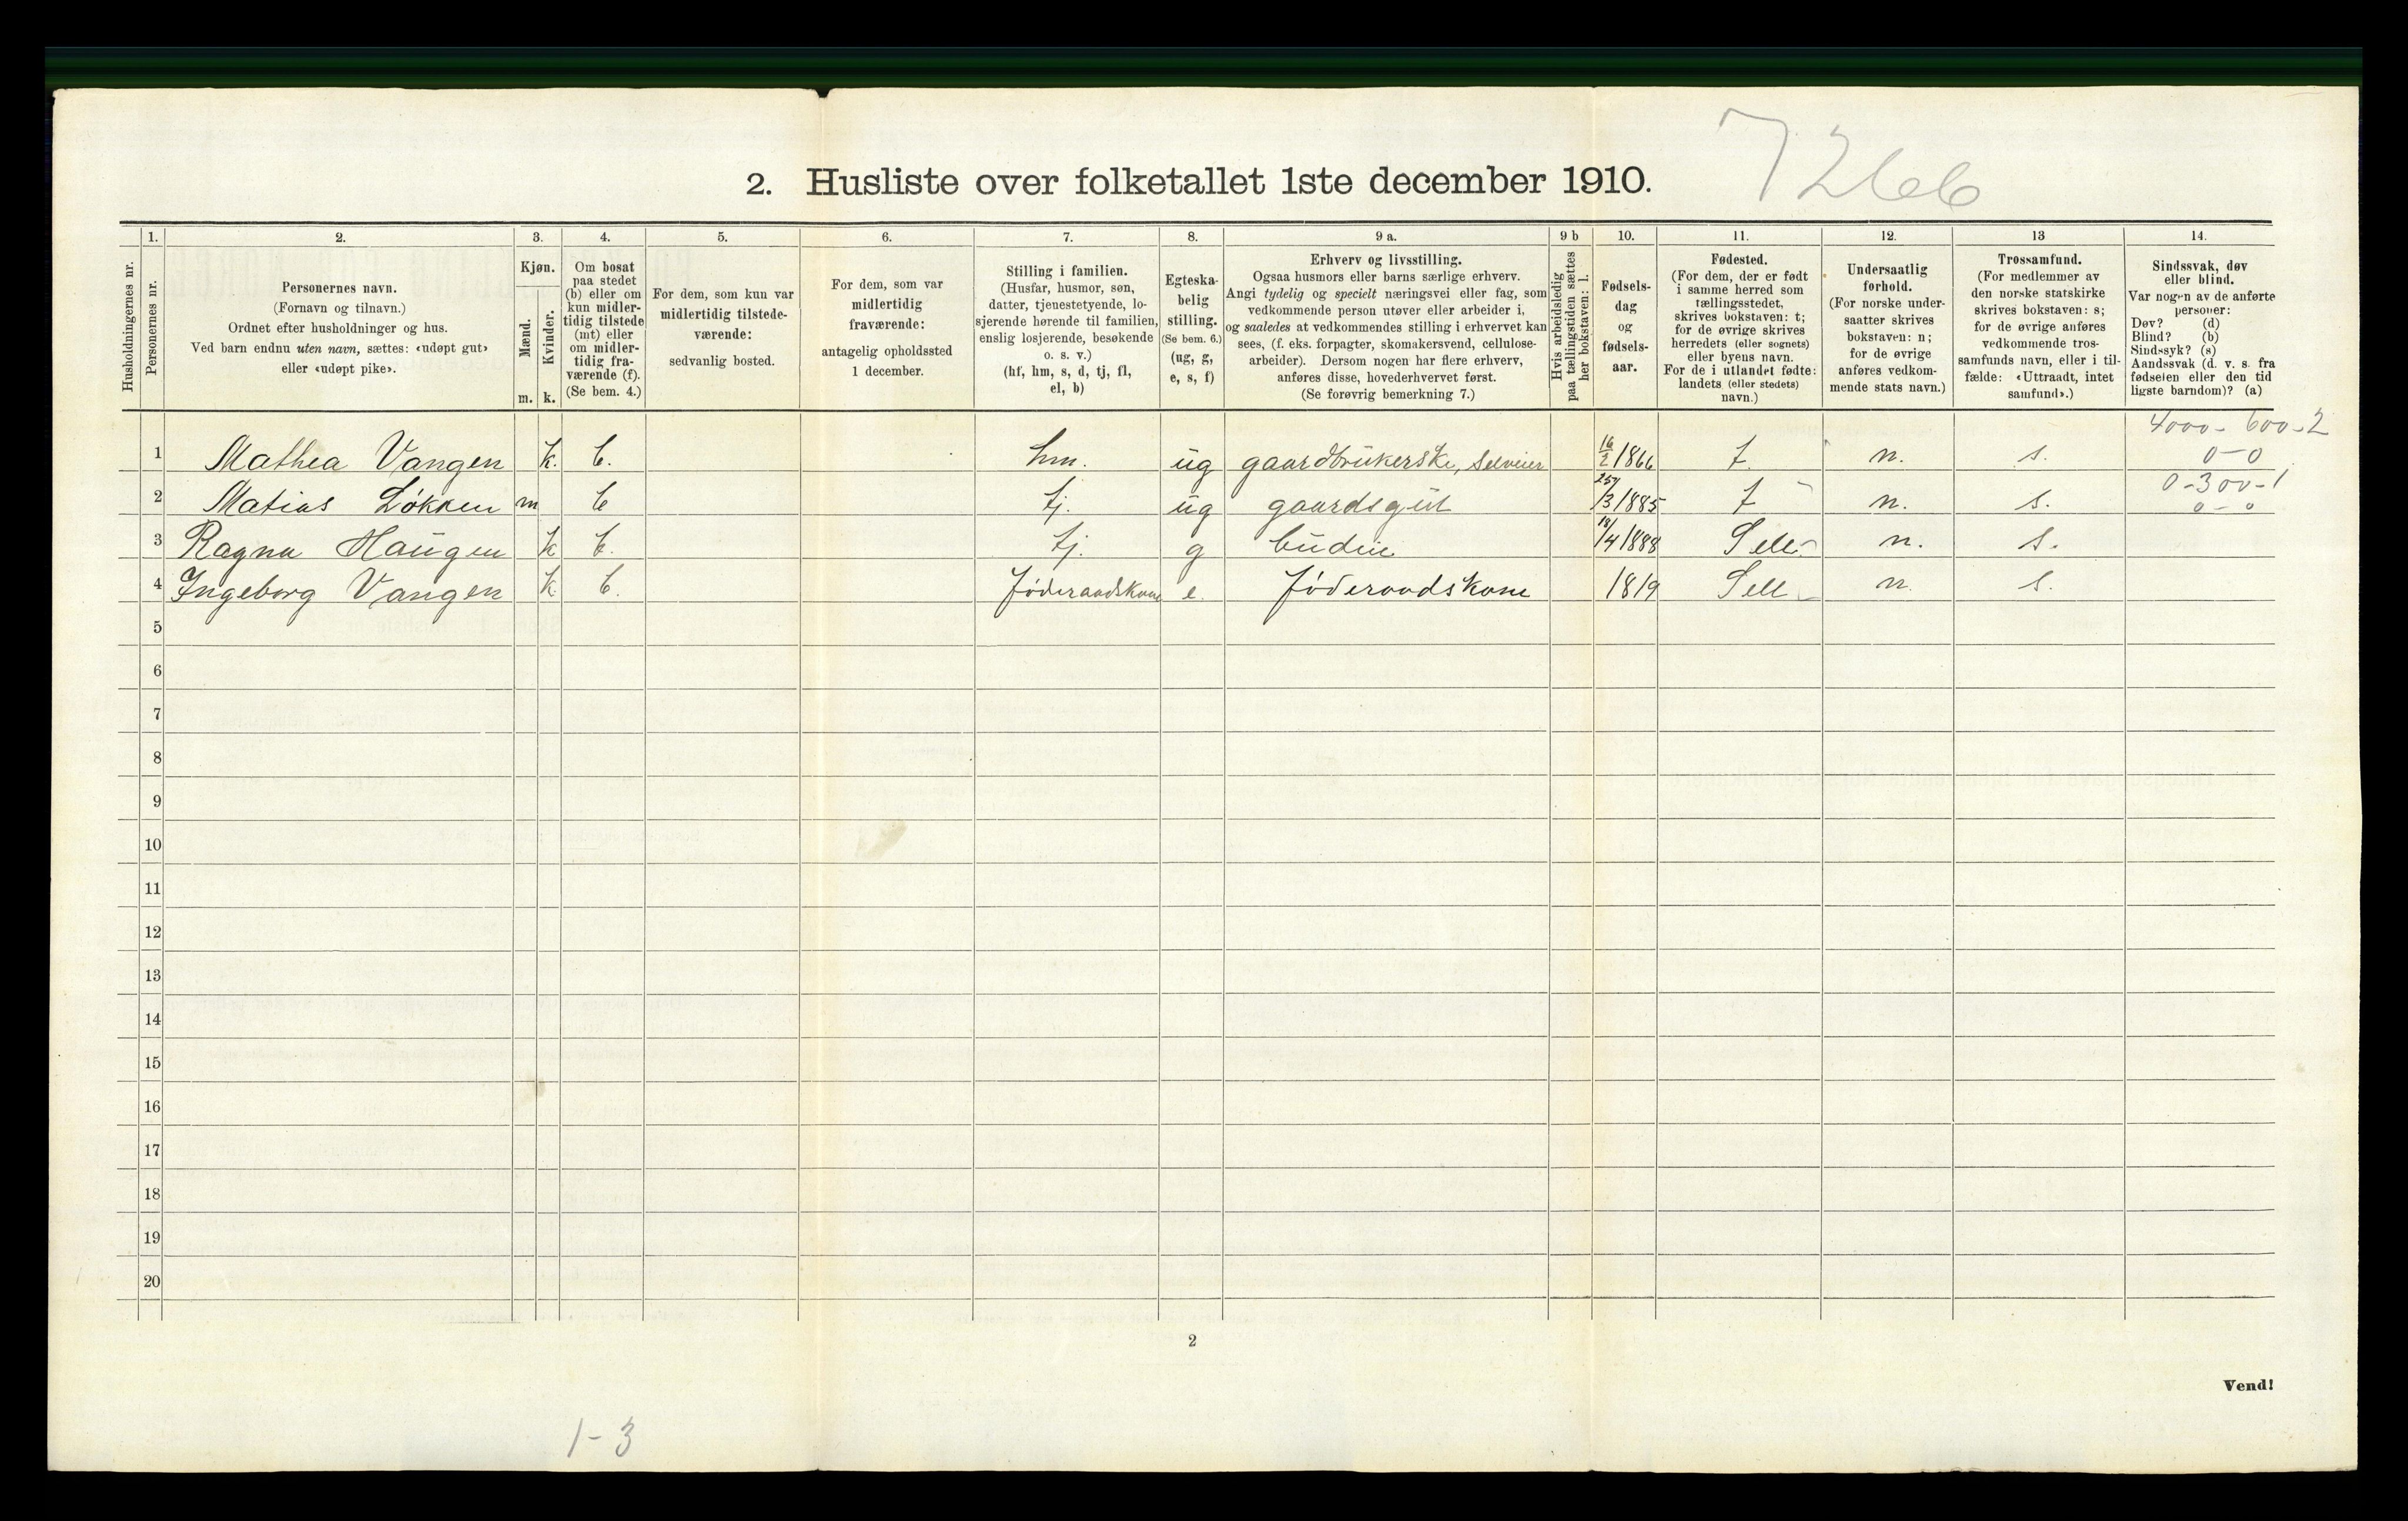 2. Husliste over folketallet 1ste december 1910.
7266
Husholdningernes nr.
1.
Personernes nr.
2.
Personernes navn.
(Fornavn og tilnavn.)
Ordnet efter husholdninger og hus.
Ved barn endnu uten navn, sættes: «udøpt gut»
eller «udøpt pike».
3.
Kjøn.
Mænd.
Kvinder.
m. k.
4.
Om bosat
paa stedet
(b) eller om
kun midler-
tidig tilstede
(mt) eller
om midler-
tidig fra-
værende (f).
(Se bem. 4.)
5.
For dem, som kun var
midlertidig tilstede-
værende:
sedvanlig bosted.
6.
For dem, som var
midlertidig
fraværende:
antagelig opholdssted
1 december.
7.
Stilling i familien.
(Husfar, husmor, søn,
datter, tjenestetyende, lo-
sjerende hørende til familien,
enslig losjerende, besøkende
o. s. v.)
(hf, hm, s, d, tj, fl,
el, b)
8.
Egteska-
belig
stilling.
(Se bem. 6.)
(ug, g,
e, s, f)
9 a.
Erhverv og livsstilling.
Ogsaa husmors eller barns særlige erhverv.
Angi tydelig og specielt næringsvei eller fag, som
vedkommende person utøver eller arbeider i,
og saaledes at vedkommendes stilling i erhvervet kan
sees, (f. eks. forpagter, skomakersvend, cellulose-
arbeider). Dersom nogen har flere erhverv,
anføres disse, hovederhvervet først.
(Se forøvrig bemerkning 7.)
9 b
Hvis arbeidsledig
paa tællingstiden sættes
her bokstaven: l.
10.
Fødsels-
dag
og
fødsels-
aar.
11.
Fødested.
(For dem, der er født
i samme herred som
tællingsstedet,
skrives bokstaven: t;
for de øvrige skrives
herredets (eller sognets)
eller byens navn.
For de i utlandet fødte:
landets (eller stedets)
navn.)
12.
Undersaatlig
forhold.
(For norske under-
saatter skrives
bokstaven: n;
for de øvrige
anføres vedkom-
mende stats navn.)
13
Trossamfund.
(For medlemmer av
den norske statskirke
skrives bokstaven: s;
for de øvrige anføres
vedkommende tros-
samfunds navn, eller i til-
fælde: «Uttraadt, intet
samfund».)
14.
Sindssvak, døv
eller blind.
Var nogen av de anførte
personer:
Døv? (d)
Blind? (b)
Sindssyk? (s)
Aandssvak (d. v. s. fra
fødselen eller den tid
ligste barndom)? (a)
4000 - 600 - 2
1 Mathea Vangen k. b. hm. ug gaardbrukerske, Selveier 16/2 1866 t. n. s. 0-0
0-300-1
2 Matias Løkken m b tj. ug gaardsgut /3 1885 t n. s. 0-0
3 Ragna Haugen k b. tj. g budeie 18/4 1888 Sell n. s.
4 Ingeborg Vangen k b. føderaadskone e. føderaadskone 1819 Sell n. s.
5
6
7
8
9
10
11
12
13
14
15
16
17
18
19
20
2
Vend!
1-3